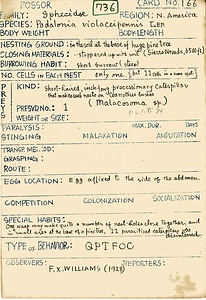 FOSSOR 736 CARD NO. 166
FAMILY: Sphecidae REGION: N. America
SPECIES: Podalonia violaceipennis LEP
BODY WEIGHT BODY-LENGTH
NESTING GROUND: in the soil at the base of huge pine tree
CLOSING MATERIALS: stopped up with soil (Sierra Nevada,
BURROWING HABIT: short burrow (steep)
NO. CELLS IN EACH NEST only one,
PREYS
KIND: Short-haired, processionary caterpillar
that makes nests on Ceanothus bushes
PRESVD. NO: 1 (Malacosoma sp)
WEIGHT OR SIZE:
PARALYSIS: MAX. DUR. DAYS
STINGING MALAXATION AMPUTATION
TRANSP. MEI. OD:
GRASPING:
ROUTE:
EGG LOCATION: Egg affixed to the side of the abdomen
COMPETITION COLONIZATION SOCIALIZATION
SPECIAL HABITS:
One wasp may make quite a number of nest-holes close together, and
at the base of a pine tree, 22 parasitized caterpillars were
TYPE OF BEHAVIOR: QPTFOC
OBSERVERS: REPORTERS:
F.X. WILLIAMS (1928)